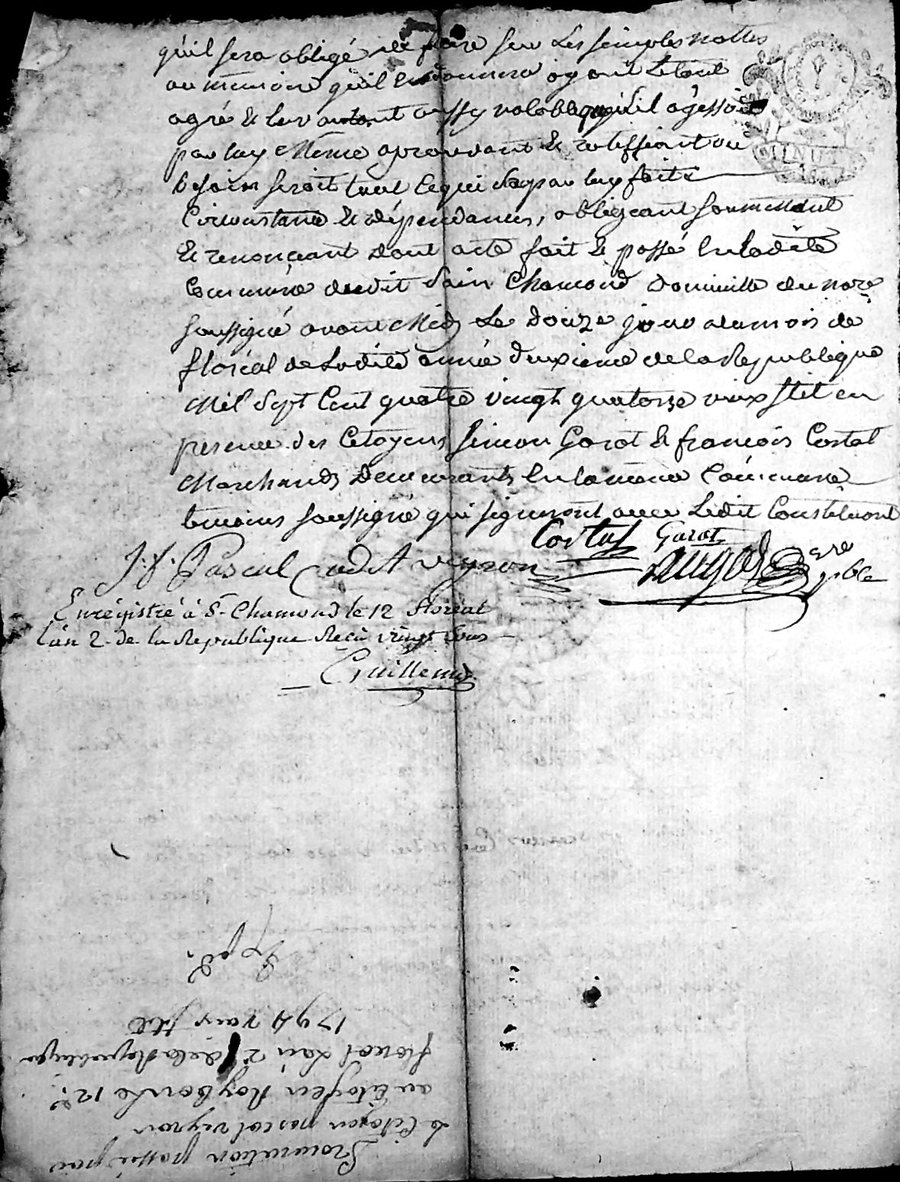 qu'il sera obligé de faire sur Les simples nottes
ou memoire qu'il en donnera ayant Letout
agré & Lur autant aussy valable que s'il agissoit
par luy Même aprouvant & ratiffiant ou
besoin seroit tout ce qui par luy fait
Circonstance & dépendances, obligeant soumettant
& renonçant dont acte fait & passé En ladite
Commune dudit Sain Chamond Domicille du nore
soussigné avant Midy Le douze jour du mois de
floréal de Ladite année deuxieme de la Republique
Mil Sept Cent quatre vingt quatorze vieux Stil en
presence des Citoyens Simeon Garot & françois Costal
Marchands Demeurants En la meme Commune
temoins soussigné qui signeront avec Ledit Constituant
Costal Garot
J. f. Pascal cadet veyron
Enregistré à St Chamond le 12 floréal
l'an 2 de la Republique Reçu vingt sous
Guillemi
Procuration passée par
Le Citoyen pascal veyron
au Citoyen Le 12e
floreal L'an 2e de la Republique
1794 vieux stil
Expéd.